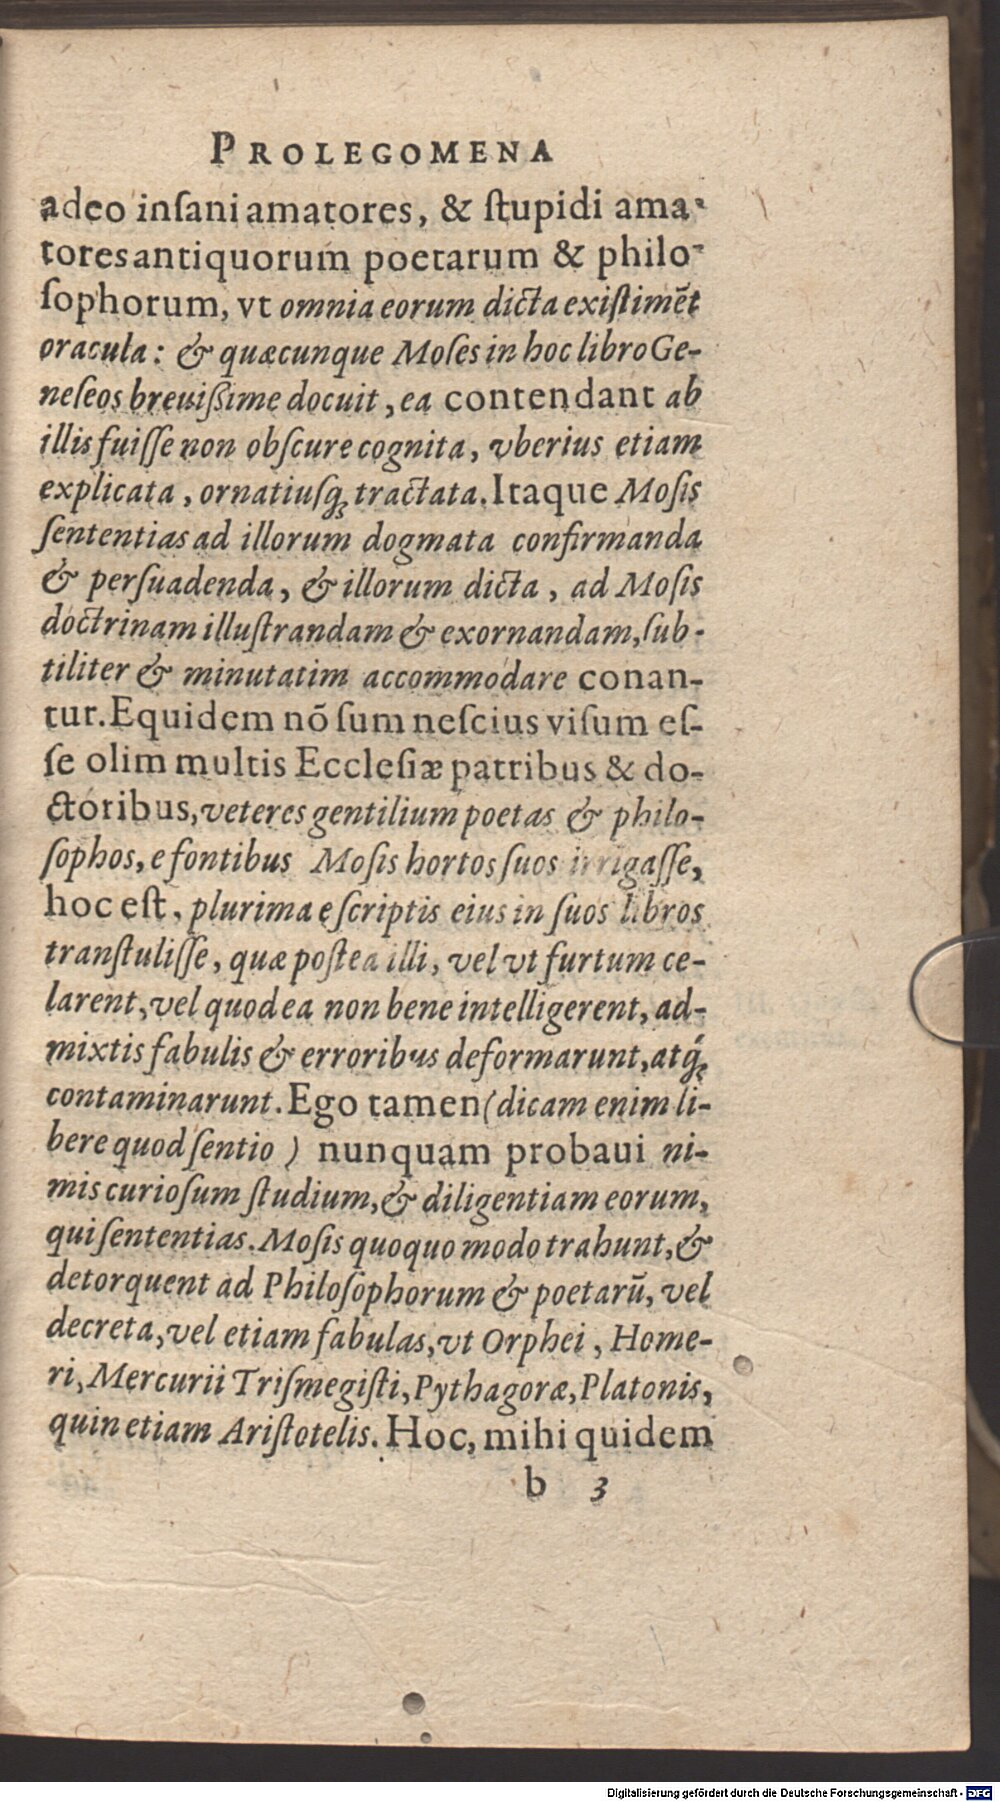 PROLEGOMENA
adeo inſani amatores, & ſtupidi ama-
tores antiquorum poetarum & philo-
ſophorum, vt omnia eorum dicta exiſtimēt
oracula: & quæcunque Moſes in hoc libro Ge-
neſeos breuiſsime docuit, ea contendant ab
illis fuiſſe non obſcure cognita, vberius etiam
explicata, ornatiuſq; tractata. Itaque Moſis
ſententias ad illorum dogmata confirmanda
& perſuadenda, & illorum dicta, ad Moſis
doctrinam illuſtrandam & exornandam, ſub-
tiliter & minutatim accommodare conan-
tur. Equidem nō ſum neſcius viſum eſ-
ſe olim multis Eccleſiæ patribus & do-
ctoribus, veteres gentilium poetas & philo-
ſophos, e fontibus Moſis hortos ſuos irrigaſſe,
hoc eſt, plurima e ſcriptis eius in ſuos libros
tranſtuliſſe, quæ poſtea illi, vel vt furtum ce-
larent, vel quod ea non bene intelligerent, ad-
mixtis fabulis & erroribus deformarunt, atq́;
contaminarunt. Ego tamen (dicam enim li-
bere quod ſentio) nunquam probaui ni-
mis curioſum ſtudium, & diligentiam eorum,
qui ſententias. Moſis quoquo modo trahunt, &
detorquent ad Philoſophorum & poetarū, vel
decreta, vel etiam fabulas, vt Orphei, Home-
ri, Mercurii Triſmegiſti, Pythagoræ, Platonis,
quin etiam Ariſtotelis. Hoc, mihi quidem
b 3
Digitalisierung gefördert durch die Deutsche Forschungsgemeinschaft - DFG